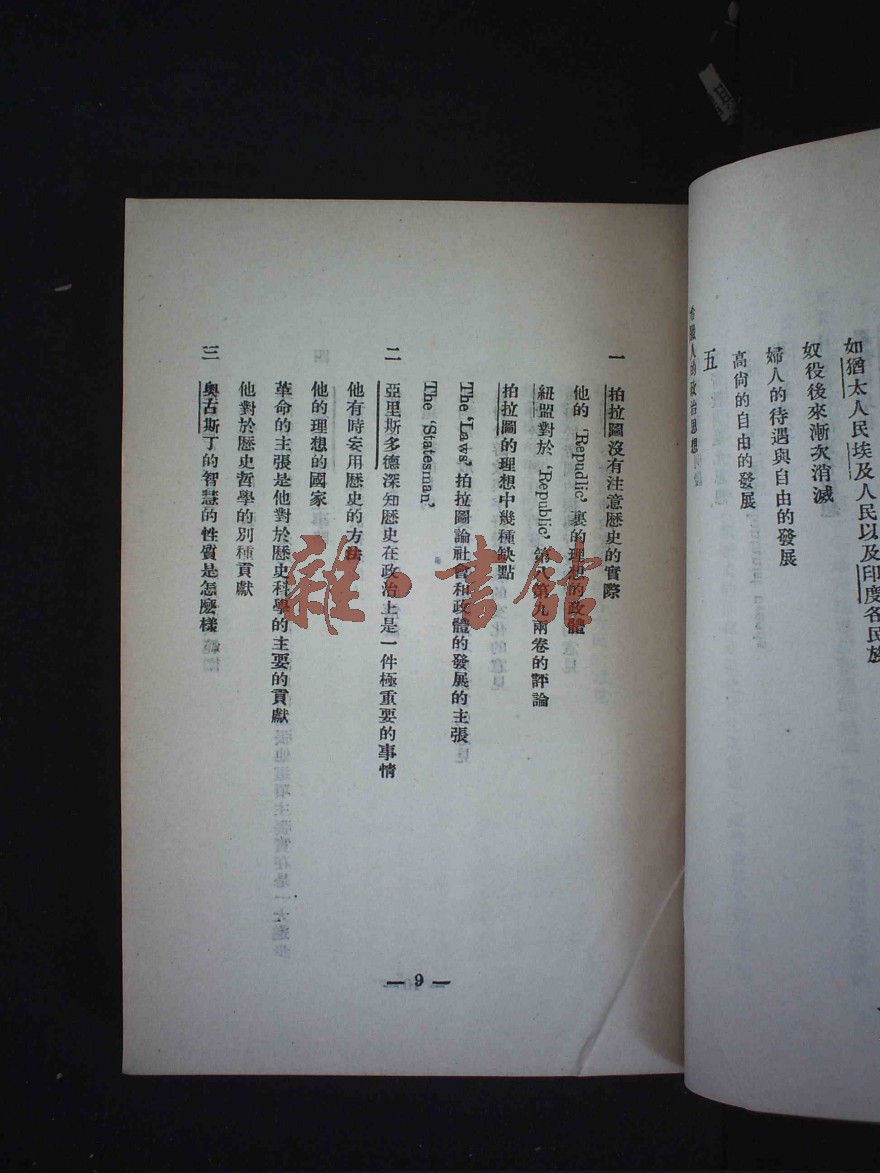 如猶太人民埃及人民以及印度各民族
奴役後來漸次消滅
婦人的待遇與自由的發展
高尙的自由的發展
五
人的政治思想
一 拍拉圖沒有注意歷史的實際
他的 'Repudlic' 裏的理想的政體
紐盟對於 'Republic' 第八第九兩卷的評論
拍拉圖的理想中幾種缺點
The 'Laws' 拍拉圖論社會和政體的發展的主張
The 'Statesman'
二 亞里斯多德深知歷史在政治上是一件極重要的事情
他有時妄用歷史的方法
他的理想的國家
革命的主張是他對於歷史科學的主要的貢獻
他對於歷史哲學的別種貢獻
三 奧古斯丁的智慧的性質是怎麼樣
— 9 —
雜·書館